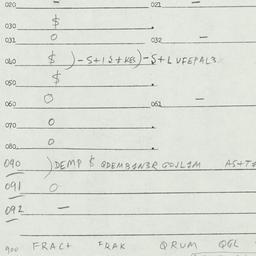 020 – 021 –
030 $
031 0 032 –
040 $ )-S+IS+KES)-S+LUFEPAL3
050 $
060 0 061 –
070 0
080 0
090 )DEMP $ QDEMBSN3R GOVL2M
091 0
092 –
900 FRACT FRAK QRUM QGL